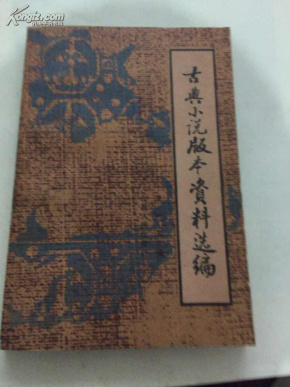 Kongfz.com
孔网
古典小说版本資料选编